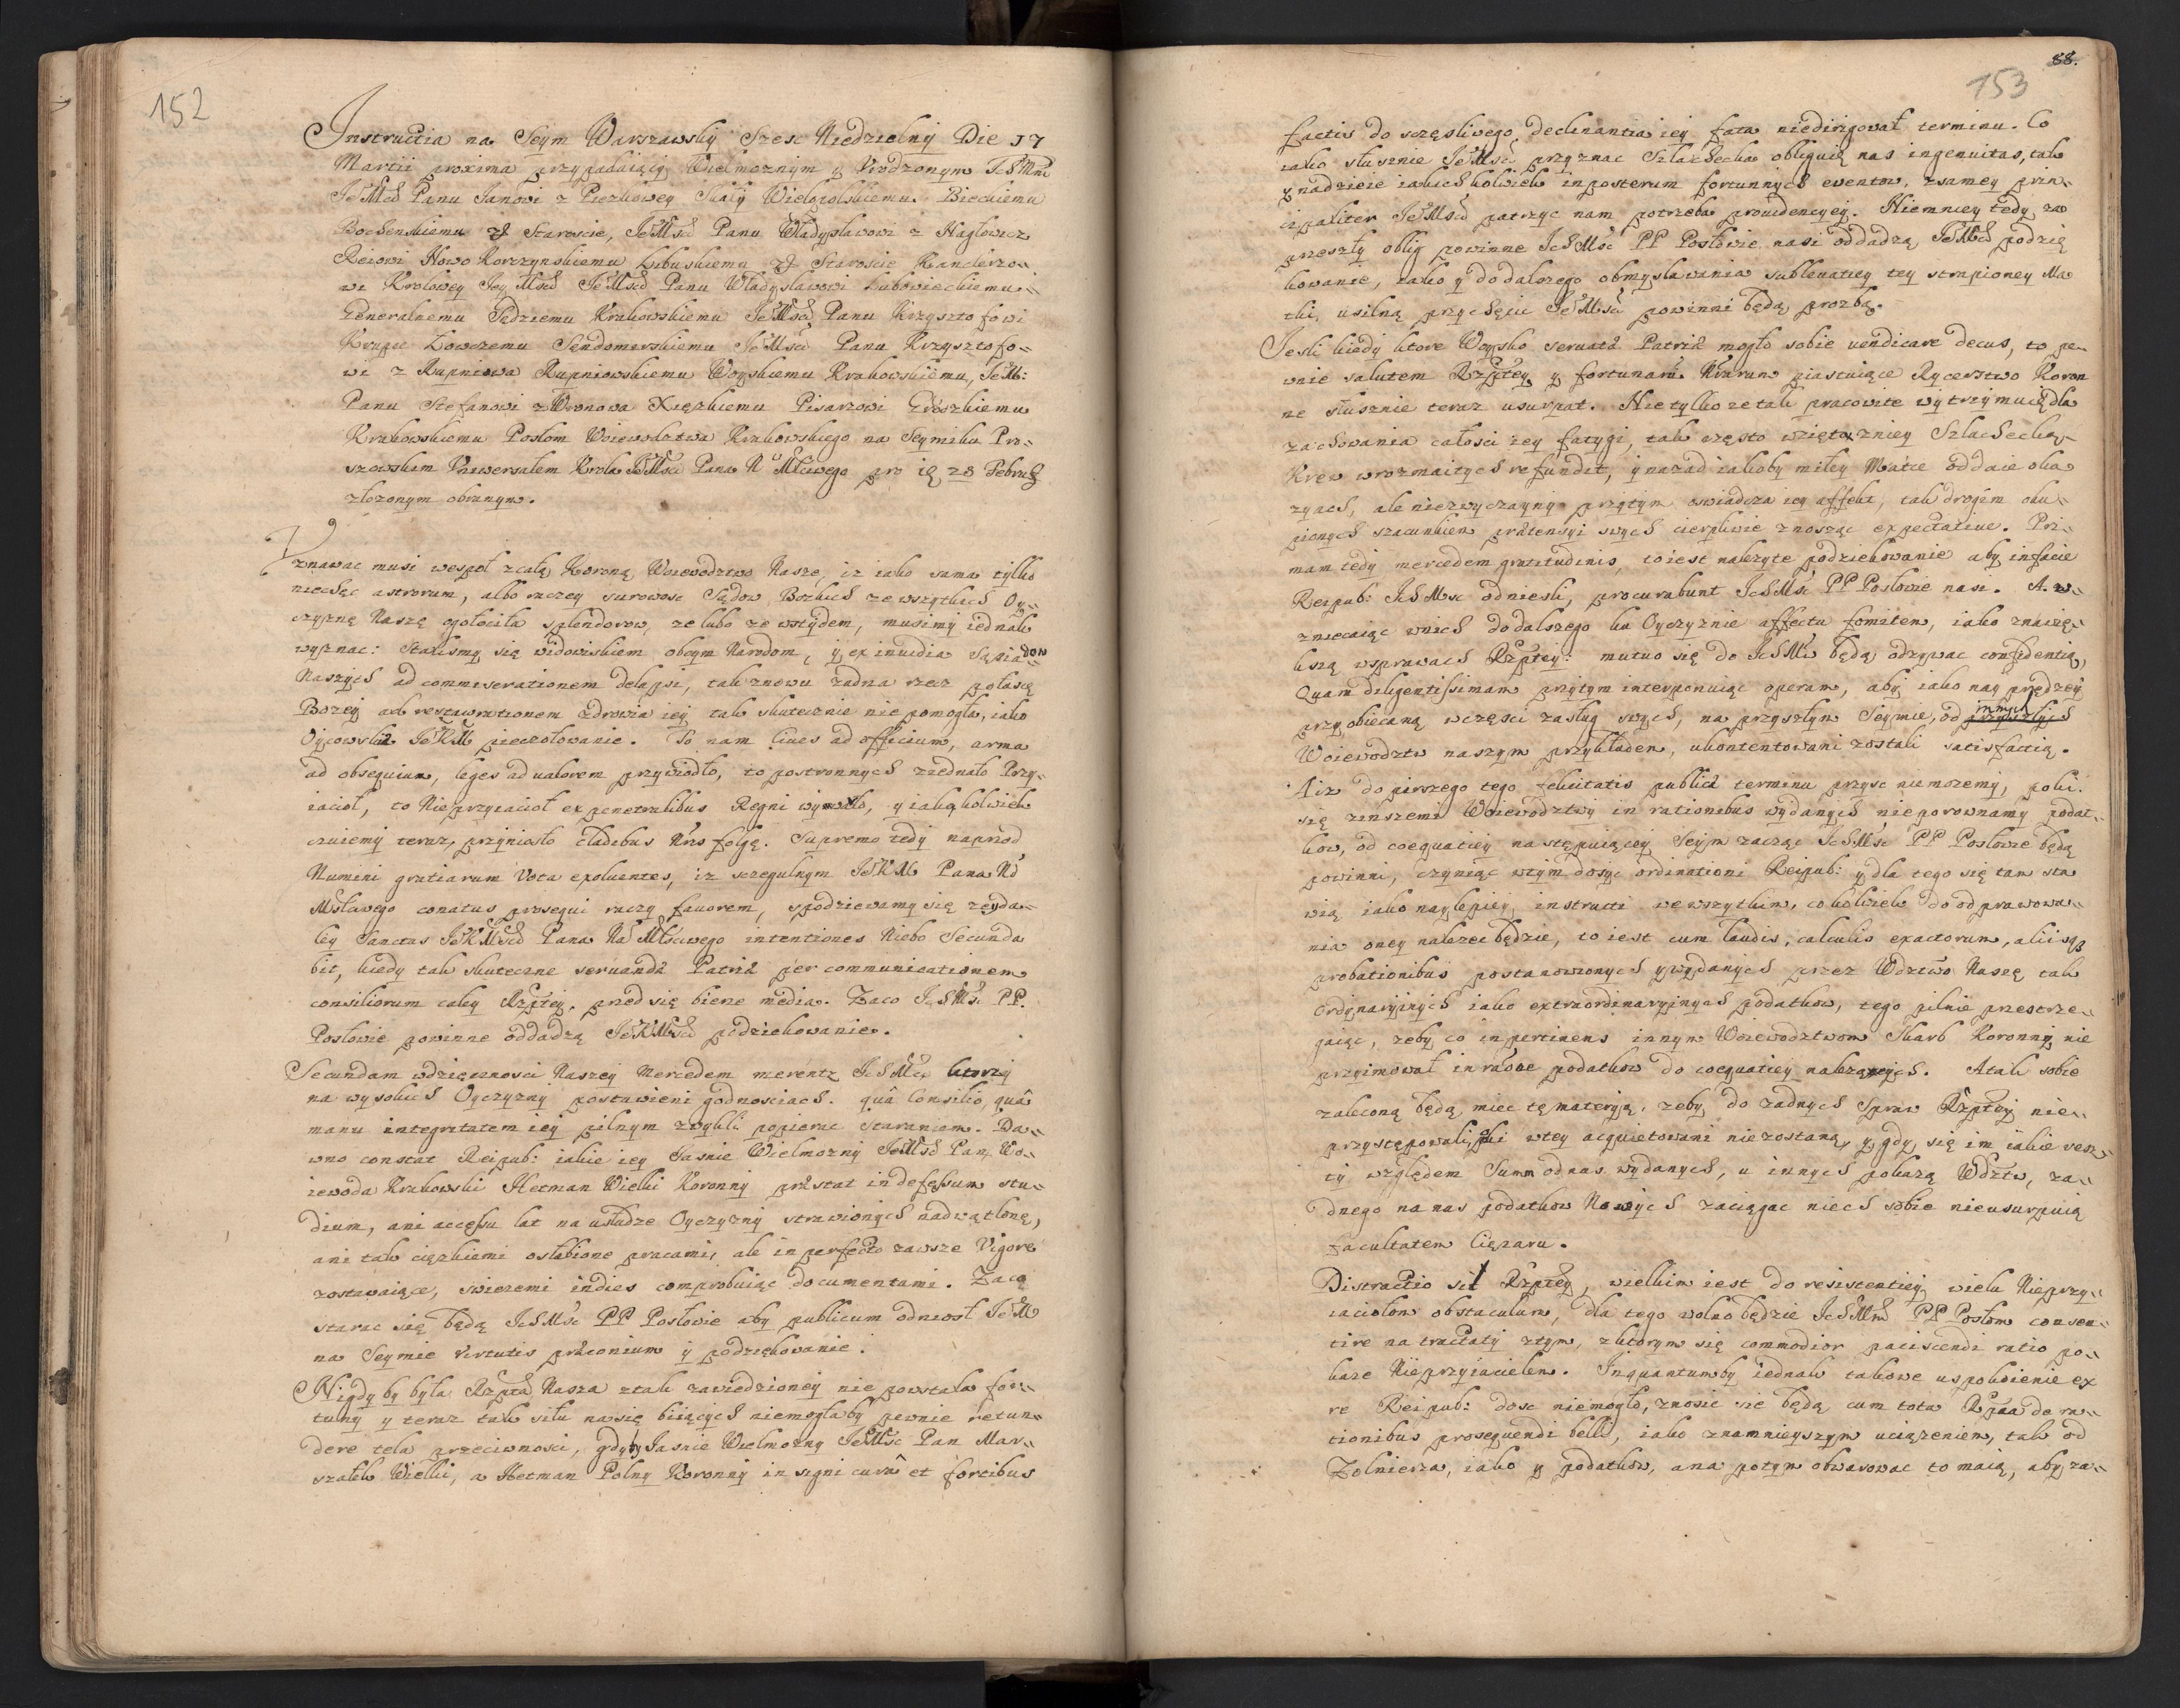 152
Instructia na Seym Warszawskij Szesc Niedzielnij Die 17
Martii proxima przypadaiącij Wielmoznym y Vrodzonym IchMm
JeMsd Panu Janowi z Pieskowey Skały Wielopolskiemu Bieckiemu
Bochenskiemu & Staroscie, JeMści Panu Władysławowi z Nagłowicz
Reiowi Nowo Korczynskiemu Libuskiemu & Staroscie Kanclerzo„
wi Krolowey Jey Mscd JeMscd Panu Władysławowi Lubowieckiemu„
Generalnemu Sędziemu Krakowskiemu JeMsci Panu Krzysztofowi
Krupce Łowczemu Sendomirskiemu JeMsci Panu Krzysztofo„
wi z Rupniowa Rupniowskiemu Woyskiemu Krakowskiemu, JeM:
Panu Stefanowi z Wronowa Xięzkiemu Pisarzowi Groszkiemu
Krakowskiemu Posłom Woiewodztwa Krakowskiego na Seymiku Pro„
szowskim Vniwersałem Krola JeMsci Pana N Młciwego pro 28 Februarij
złozonym obranym.
Vznawac musi wespoł zcałą Koroną Woiewodztwo Nasze, iz iako sama tylko
niechęc astrorum, albo raczey surowosc Sądow Bozkich ze wszytkich Oy„
czyznę Naszę ogołociła splendorow, ze lubo ze wstydem, musimy iednak
wyznac: Stalismy się widowiskiem obcym Narodom, y ex inuidia Sąsiadow
Naszych ad commiserationem delapsi, tak znowu zadna rzecz połascę
Bozey ad restaurationem zdrowia iey tak skutecznie nie pomogła, iako
Oycowskie JeKM pieczołowanie. To nam Ciues ad officium, arma
ad obsequium, leges ad valorem przywiodło, to postronnych ziednało Przy„
iacioł, to Nieprzyiacioł ex penetralibus Regni wyrwało, y iakąkolwiek
czuiemy teraz, przyniosło cladibus Nris folgę. Supremo tedy naprzod
Numini gratiarum Vota exoluentes, iz szczegulnym JeKM Pana Nō
Msłciwego conatus prosequi raczy fauorem, spodziewamy się zeyda„
ley Sanctas JeKMscd Pana Nō Młsciwego intentiones Niebo Secunda
bit, kiedy tak skuteczne seruandæ Patriæ per communicationem
consiliorum całey Rzptey. przed się bierze media. Zaco IchMśc PP.
Posłowie powinne oddadzą JeKMscd podziekowanie.
Secundam wdzięcznosci Naszey Mercedem merentr IchMśc ktorzy
na wysokich Oyczyzny postawieni godnosciach. quâ Consilio, quâ
manu integritatem iey pilnym zwykli popierac staraniem. Da„
wno constat Reipub: iakie iey Jasnie Wielmozny JeMsd Pan, Wo„
iewoda Krakowski Hetman Wielki Koronny præstat indefessum stu„
dium, ani accessu lat na usłudze Oyczyzny strawionych nadwątlone,
ani tak ciężkiemi osłabione pracami, ale in perfecto zawsze Vigore
zostawaiące, swiezemi indies comprobuiąc documentami. Zaco
starac się będą IchMśc PP Posłowie aby publicum odniosł JeM
na Seymie Virtutis præconium y podziękowanie.
Nigdy by była Rzpta Nasza ztak zawiedzioney nie powstała for„
tuny y teraz tak siłu nasię biiących niemogłaby pewnie retun„
dere tela przeciwnosci, gdyby Jasnie Wielmozny JeMśc Pan Mar„
szałek Wielki, a Hetman Polny Koronny insigni curâ et fortibus
88.
153
factis do sczęsliwego, declinantia iey fata niedirigował terminu. Co
iako słusznie JeMsci przyznac Szlachecka obliguie nas ingenuitas, tak
y nadzieie iakichkolwiek inposterum fortunnych eventow, zsamey prin„
cipaliter JeMsci patrzyc nam potrzeba prouidencyey. Niemniey tedy za
przeszły oblig powinne IchMśc PP Posłowie nasi oddadzą JeMsci podzię
kowanie, iako y do dalszego obmyslawania subleuatiey tey strapioney Ma
tki, usilną przychęcic JeMsci powinni będą prozbą.
Jesli kiedy ktore Woysko seruatæ Patriæ mogło sobie uendicare decus, to pe„
wnie salutem Rzptey y fortunam Nraru piastuiące Rycerstwo Koron
ne słusznie teraz usurpat. Nie tylko ze tak pracowite wytrzymuią dla
zachowania całosci iey fatygi, tak często wzięta zniey Szlachecką
Krew wrozmaitych refundit, y nazad iakoby miłey Matce oddaie oka
zyach, ale niezwyczayny przytym oswiadcza iey affekt, tak drogim oku„
pionych szacunkiem prætensyi swych cierpliwie znosząc expectatiue. Pri„
mam tedy mercedem gratitudinis, to iest nalezyte podziekowanie aby infacie
Reipub: IchMśc odniesli, procurabunt IchMśc PP Posłowie nasi. A w„
zniecaiąc wnich do dalszego ku Oyczyznie affectu fomitem, iako znawię„
kszą wsprawach Rzptey: mutuo się do IchMśc będą odzywac confidentią,
Quam diligentissimam przytym interponuiąc operam, aby iako nay prędzey
przyobiecaną wczęsci zasług swych, na przyszłym Seymie, od innych przyszłych
Woiewodztw naszym przykładem, ukontentowani zostali satisfactią.
A iz do pierszego tego felicitatis publicæ terminu przysc niemozemy, poki
się zinszemi Woiewodztwy in rationibus wydanych nieporownamy podat„
kow, od coequatiey nastęmpuiącey Seym zacząc IchMśc PP Posłowie będą
powinni, czyniąc wtym dosyc ordinationi Reipub: y dla tego się tam sta
wią iako naylepiey, instructi wewszytkim, cokolwiek do odprawowa„
nia oney nalezec będzie, to iest cum laudis, calculis exactorum, aliisqs
probationibus postanowionych y wydanych przez Wdztwo Naszę tak
ordynaryinych iako extraordinaryinych podatkow, tego pilnie przestrze„
gaiąc, zeby co inpertinens innym Woiewodztwom Skarb Koronny nie
przyimował in ratione podatkow do coequatiey nalezących. A tak sobie
zaleconą będą miec tę materyą, zeby do zadnych Spraw Rzptey nie„
przystępowali, poki wtey acquietowani nie zostaną, y gdy się im iakie resz„
ty względem Summ od nas wydanych, u innych pokazą Wdztw, za„
dnego na nas podatkow Nowych zaciągac niech sobie nieusurpuią
facultatem Ciężaru.
Distractio sił Rzptey, wielkim iest do resistentiey wielu Nieprzy„
iaciołom obstaculum, dla tego wolno będzie IchMm PP Posłom consen„
tire na tractaty ztym, zktorym się commodior paciscendi ratio po„
kaze Nieprzyiacielem. Inquantumby iednak takowe uspokoienie ex
re Reipub: dosc niemogło, znosic sie będą cum tota Rptca de ra„
tionibus prosequendi belli, iako znamnieyszym uciązeniem, tak od
Zołnierza, iako y podatkow, ana potym obwarowac to maią, aby za„